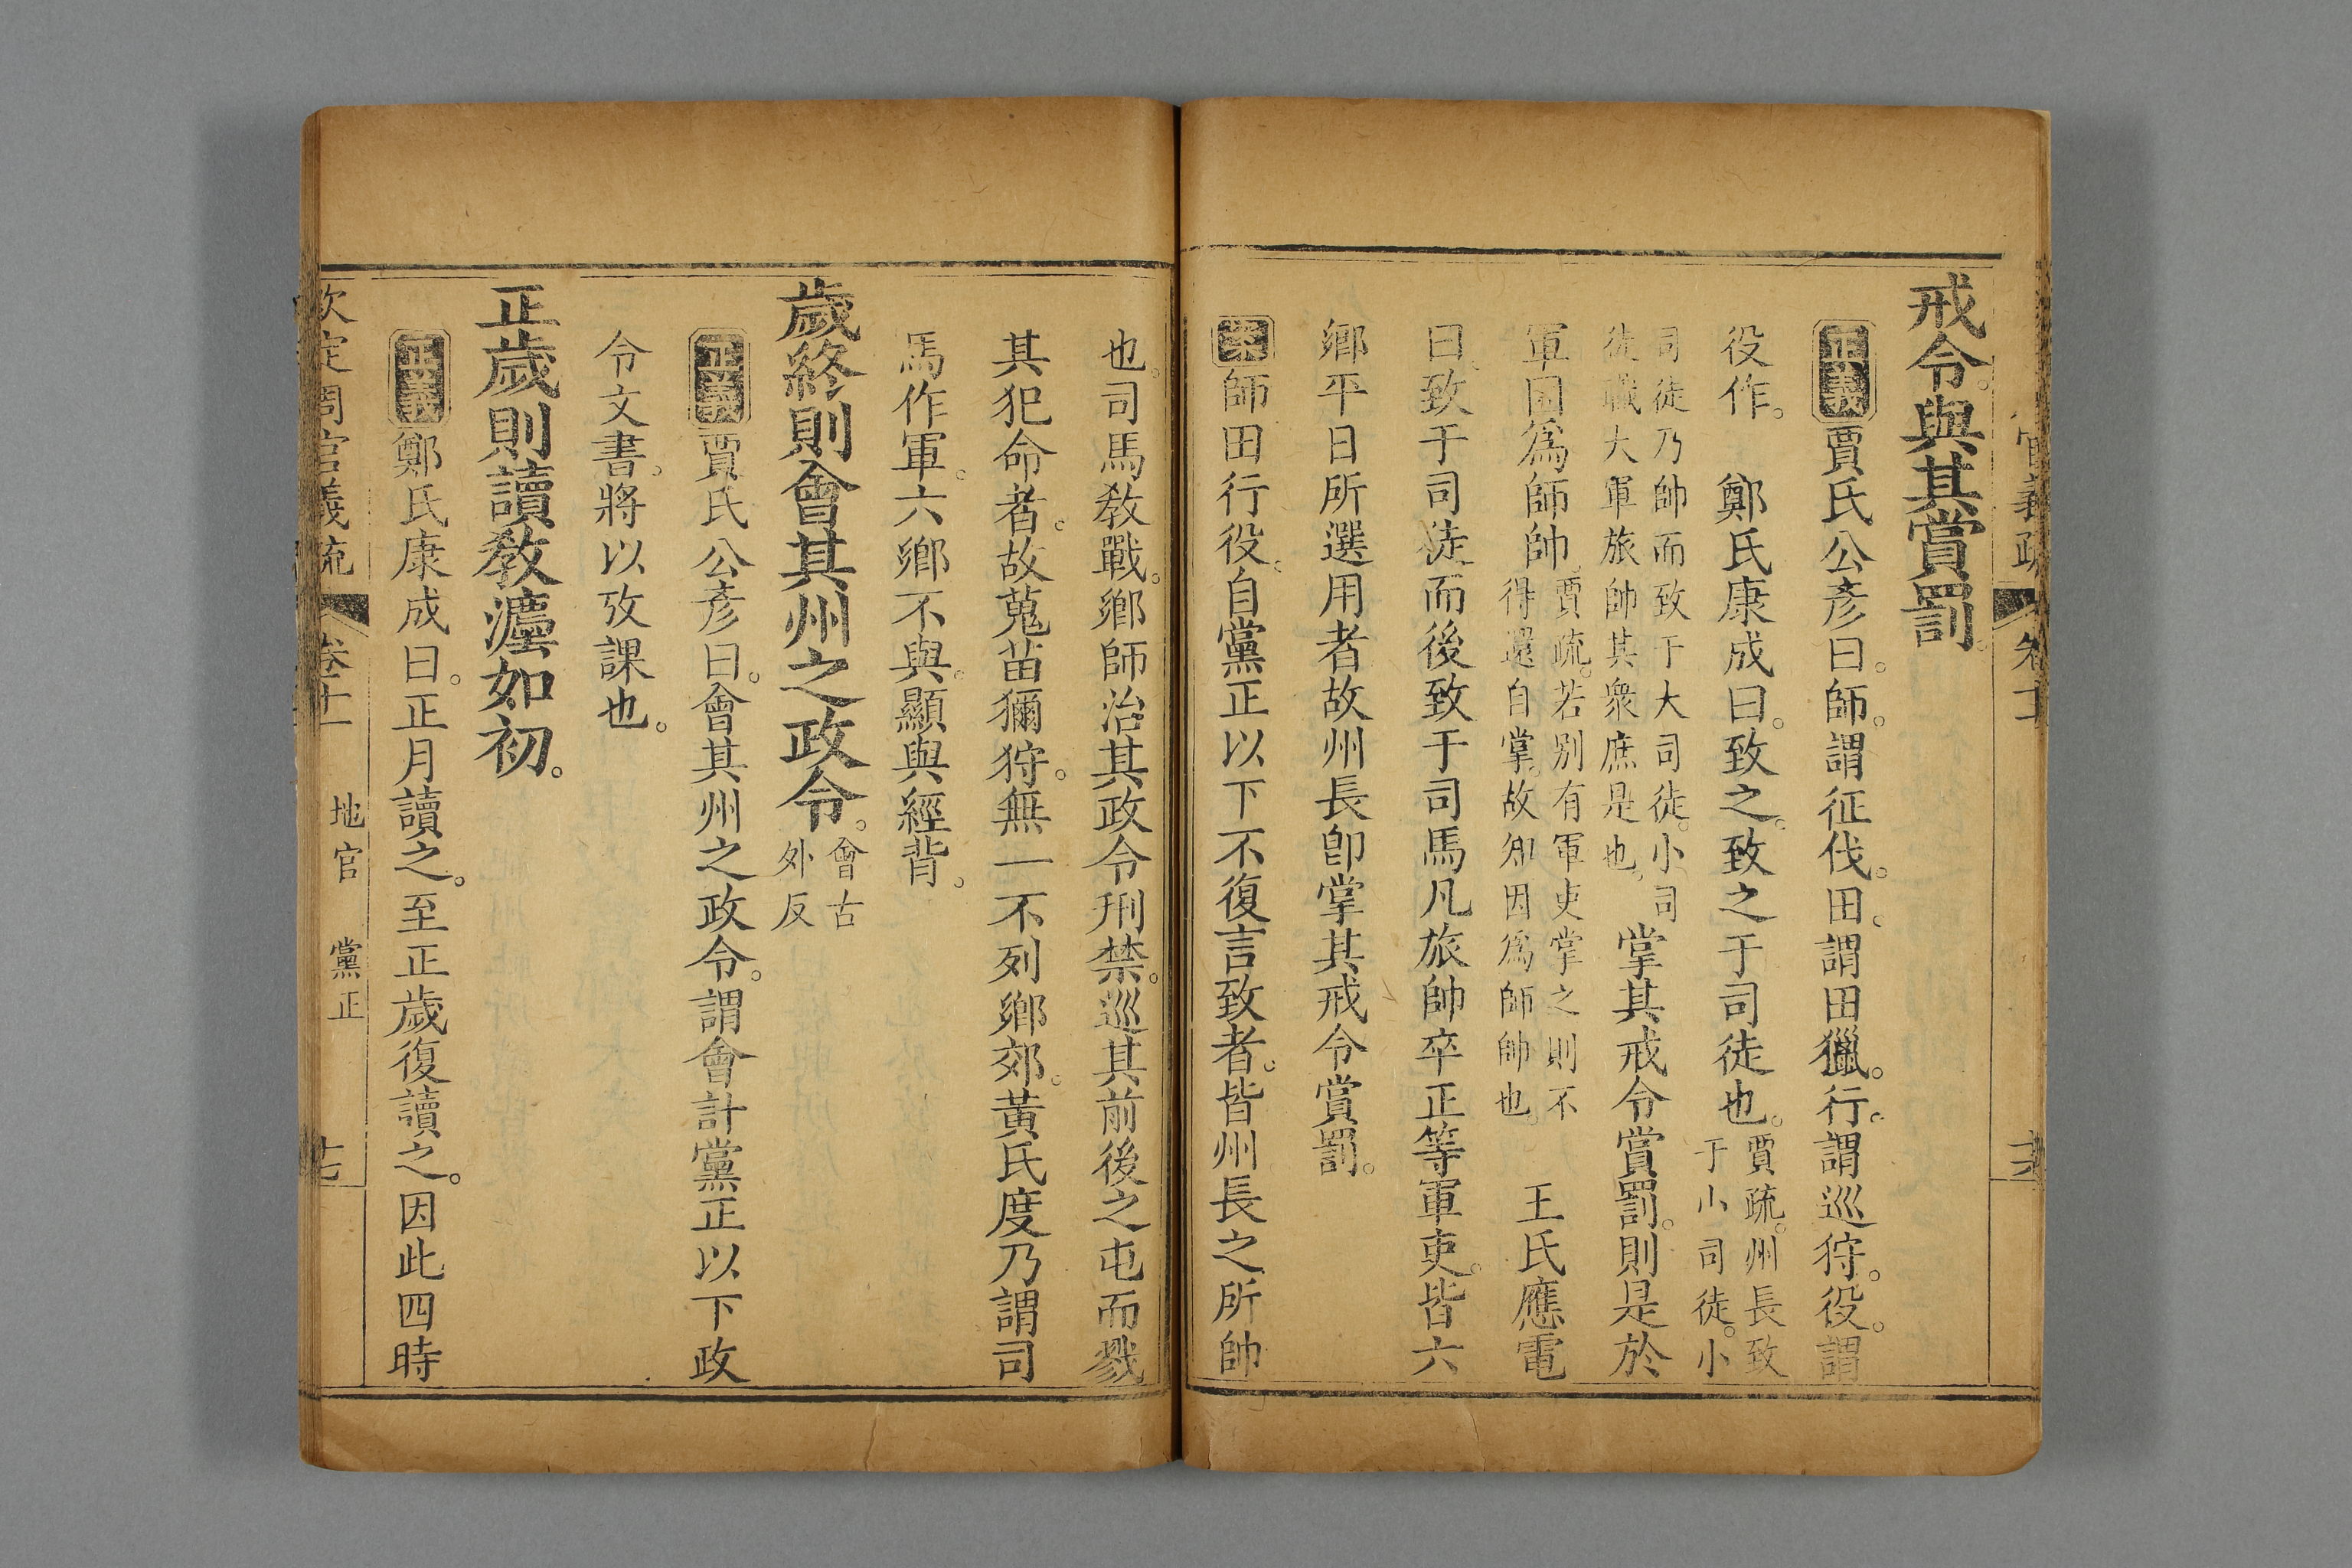 戒令。與其賞罰。
正義賈氏公彥曰。師。謂征伐。田。謂田獵。行。謂巡狩。役。謂
役作。 鄭氏康成曰。致之。致之于司徒也。賈疏。州長致于小司徒。小
司徒乃帥而致于大司徒。小司徒職大軍旅帥其衆庶是也。掌其戒令賞罰。則是於
軍因爲師帥。賈疏。若別有軍吏掌之則不得還自掌。故知因爲師帥也。 王氏應電
曰。致于司徒而後致于司馬凡旅帥卒正等軍吏。皆六
鄉平日所選用者故州長卽掌其戒令賞罰。
案師田行役。自黨正以下不復言致者。皆州長之所帥
官義疏 卷十
也。司馬敎戰。鄉師治其政令刑禁。巡其前後之屯而戮
其犯命者。故蒐苗獮狩。無一不列鄉郊。黃氏度乃謂司
馬作軍。六鄉不與。顯與經背。
歲終則會其州之政令。會古外反
正義賈氏公彥曰。會其州之政令。謂會計黨正以下政
令文書。將以攷課也。
正歲則讀敎灋如初。
正義鄭氏康成曰。正月讀之。至正歲復讀之。因此四時
欽定周官義疏 卷十一 地官 黨正 十七